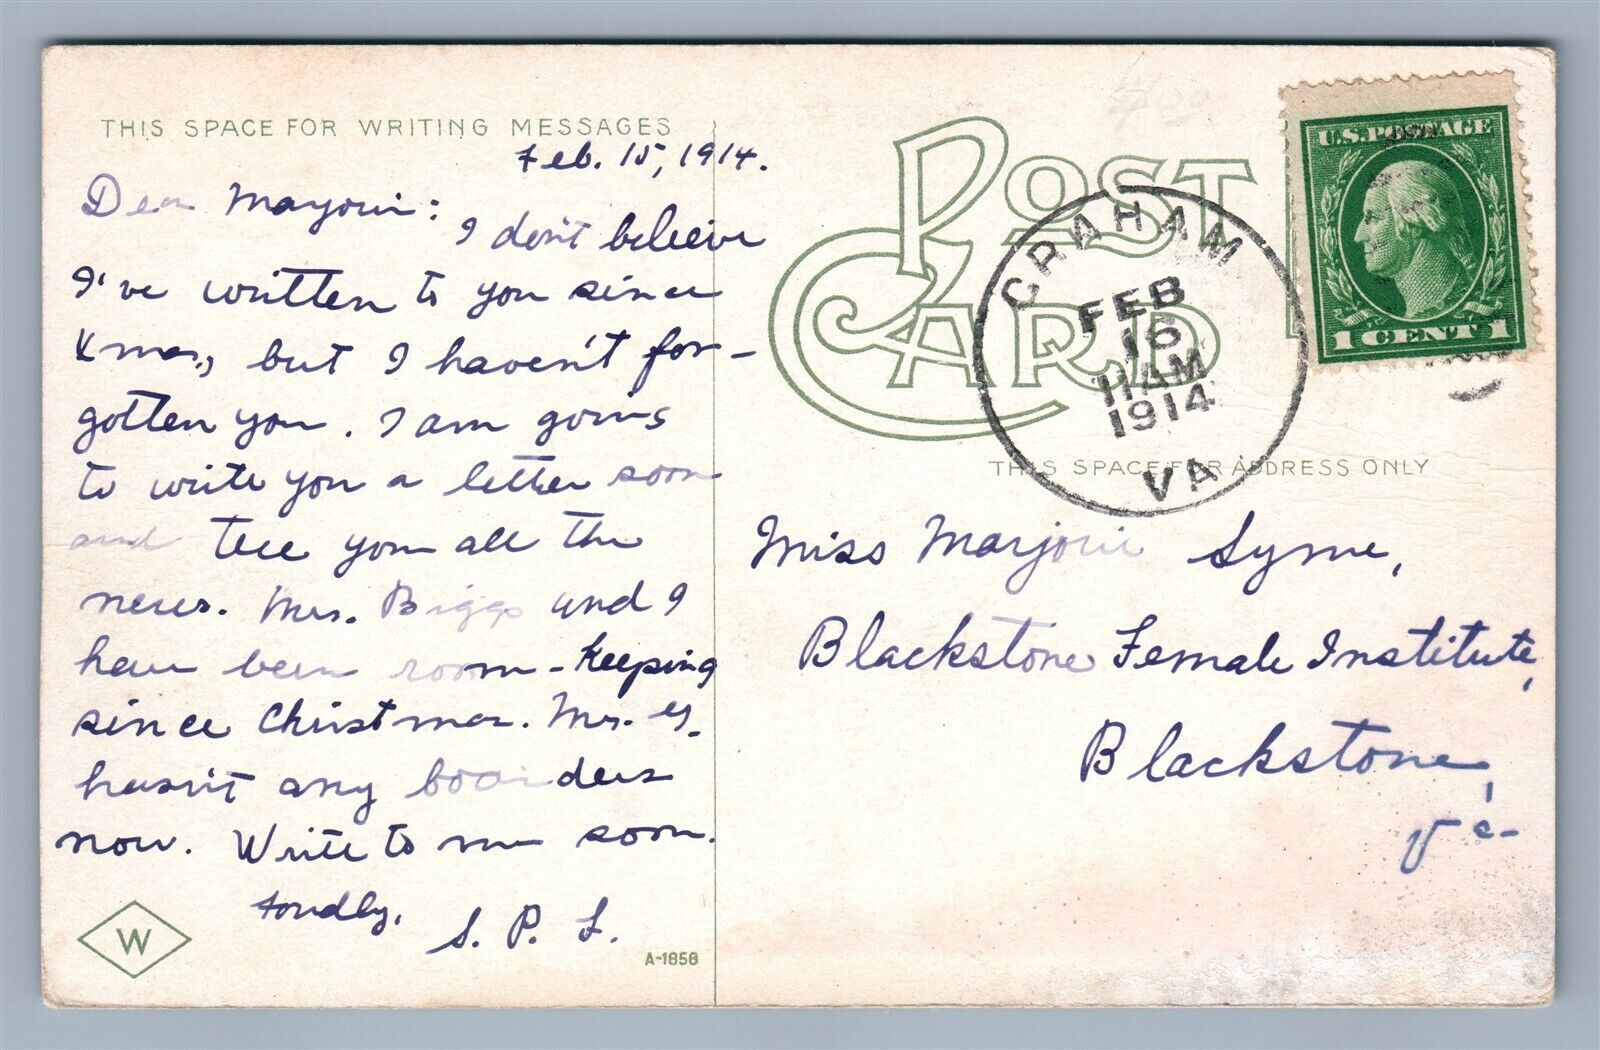 THIS SPACE FOR WRITING MESSAGES
Feb. 15, 1914.
Dear Marjorie:
I don't believe
I've written to you since
Xmas, but I haven't for-
gotten you. I am going
to write you a letter soon
and tell you all the
news. Mrs. Biggs and I
have been room-keeping
since Christmas. Mrs. G.
hasn't any boarders
now. Write to me soon.
Fondly,
S. P. L.
W
A-1858
POST
CARD
THIS SPACE FOR ADDRESS ONLY
GRAHAM
FEB
16
11 AM
1914
VA
U.S. POSTAGE
1 CENT 1
Miss Marjorie Syme,
Blackstone Female Institute,
Blackstone,
Va-